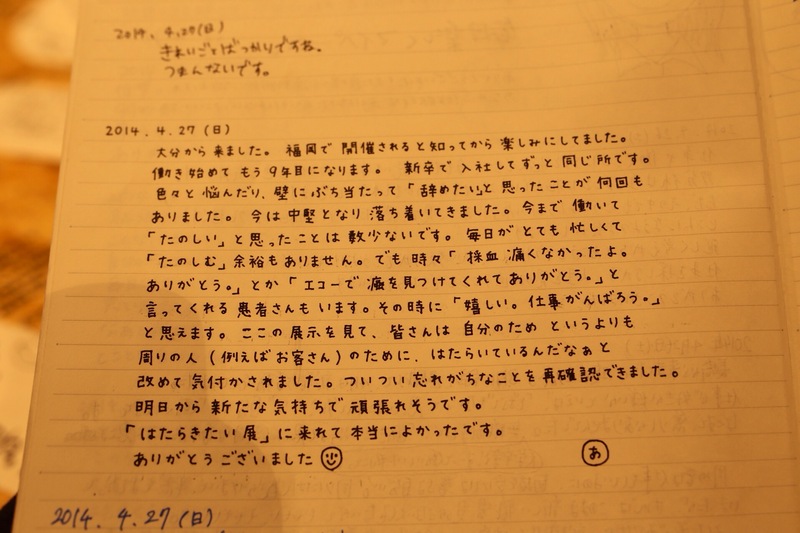 2014. 4.27(日)
きれいごとばっかりですね.
つまんないです。
2014. 4. 27 (日)
大分から来ました。福岡で開催されると知ってから楽しみにしてました。
働き始めてもう9年目になります。新卒で入社してずっと同じ所です。
色々と悩んだり、壁にぶち当たって「辞めたい」と思ったことが何回も
ありました。今は中堅となり落ち着いてきました。今まで働いて
「たのしい」と思ったことは数少ないです。毎日がとても忙しくて
「たのしむ」余裕もありません。でも時々「採血痛くなかったよ。
ありがとう。」とか「エコーで癌を見つけてくれてありがとう。」と
言ってくれる患者さんもいます。その時に「嬉しい。仕事がんばろう。」
と思えます。ここの展示を見て、皆さんは自分のためというよりも
周りの人(例えばお客さん)のために、はたらいているんだなぁと
改めて気付かされました。ついつい忘れがちなことを再確認できました。
明日から新たな気持ちで頑張れそうです。
「はたらきたい展」に来れて本当によかったです。
ありがとうございました
あ
2014. 4. 27 (日)